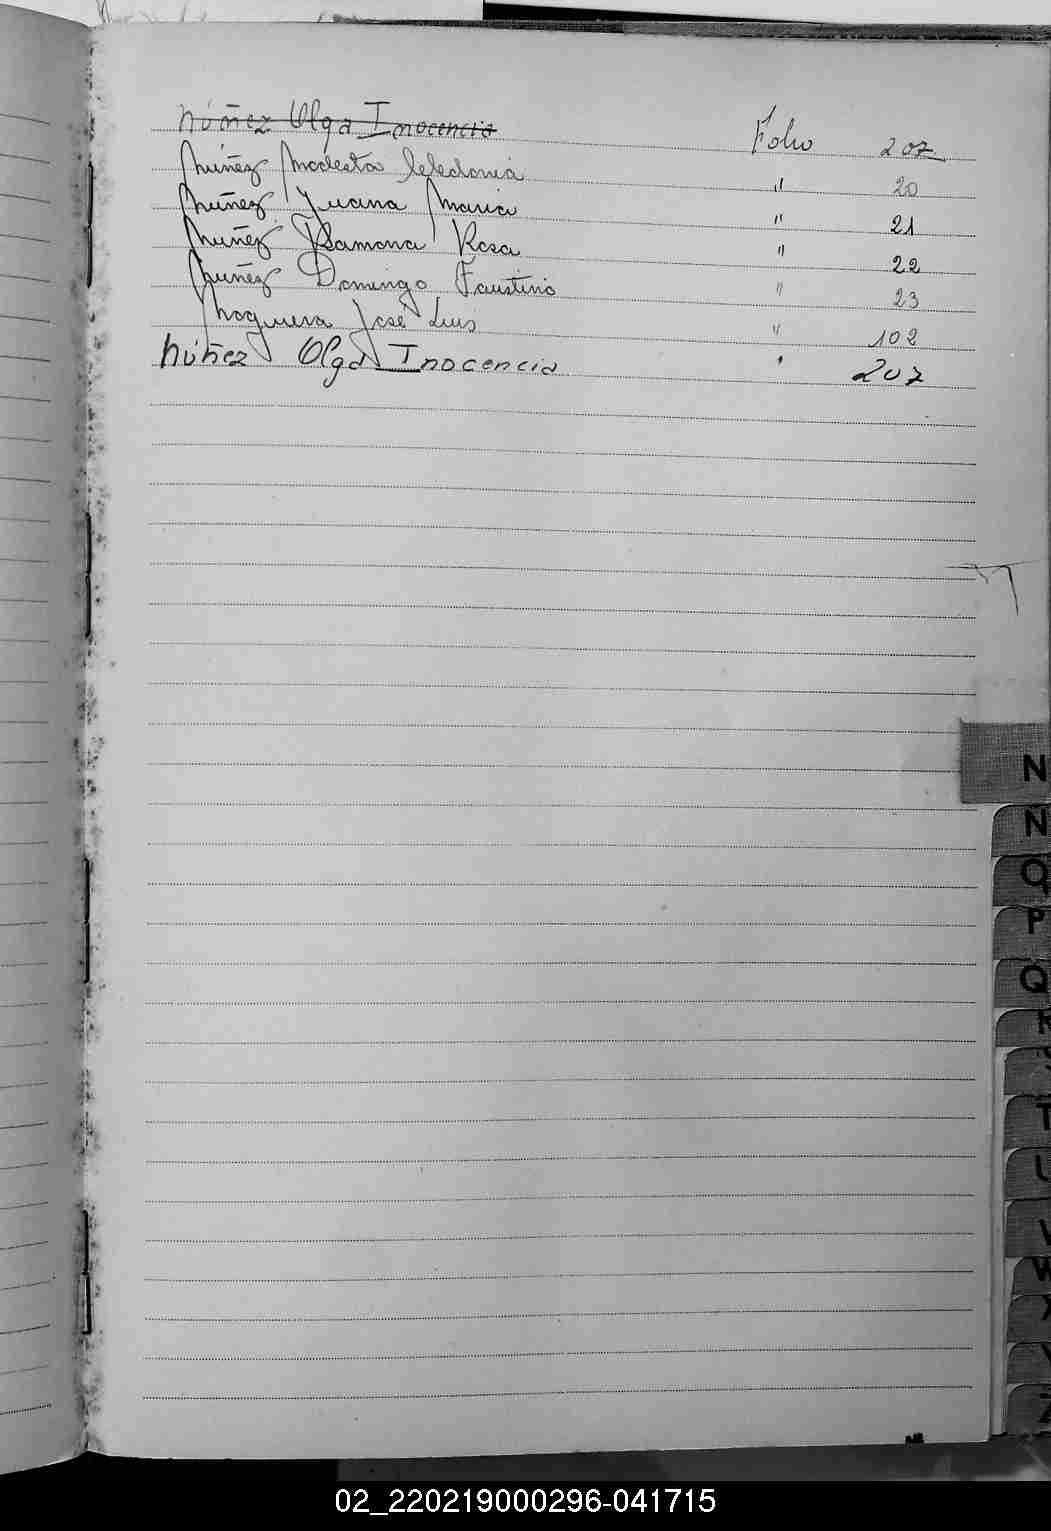 Núñez Olga Inocencia Folio 207
Núñez Modesta Celedonia " 20
Núñez Juana Maria " 21
Nuñez Ramona Rosa " 22
Nuñez Domingo Faustino " 23
Noguera José Luis " 102
Núñez Olga Inocencia " 207
N
Ñ
O
P
Q
R
T
U
V
W
X
Y
Z
02_220219000296-041715